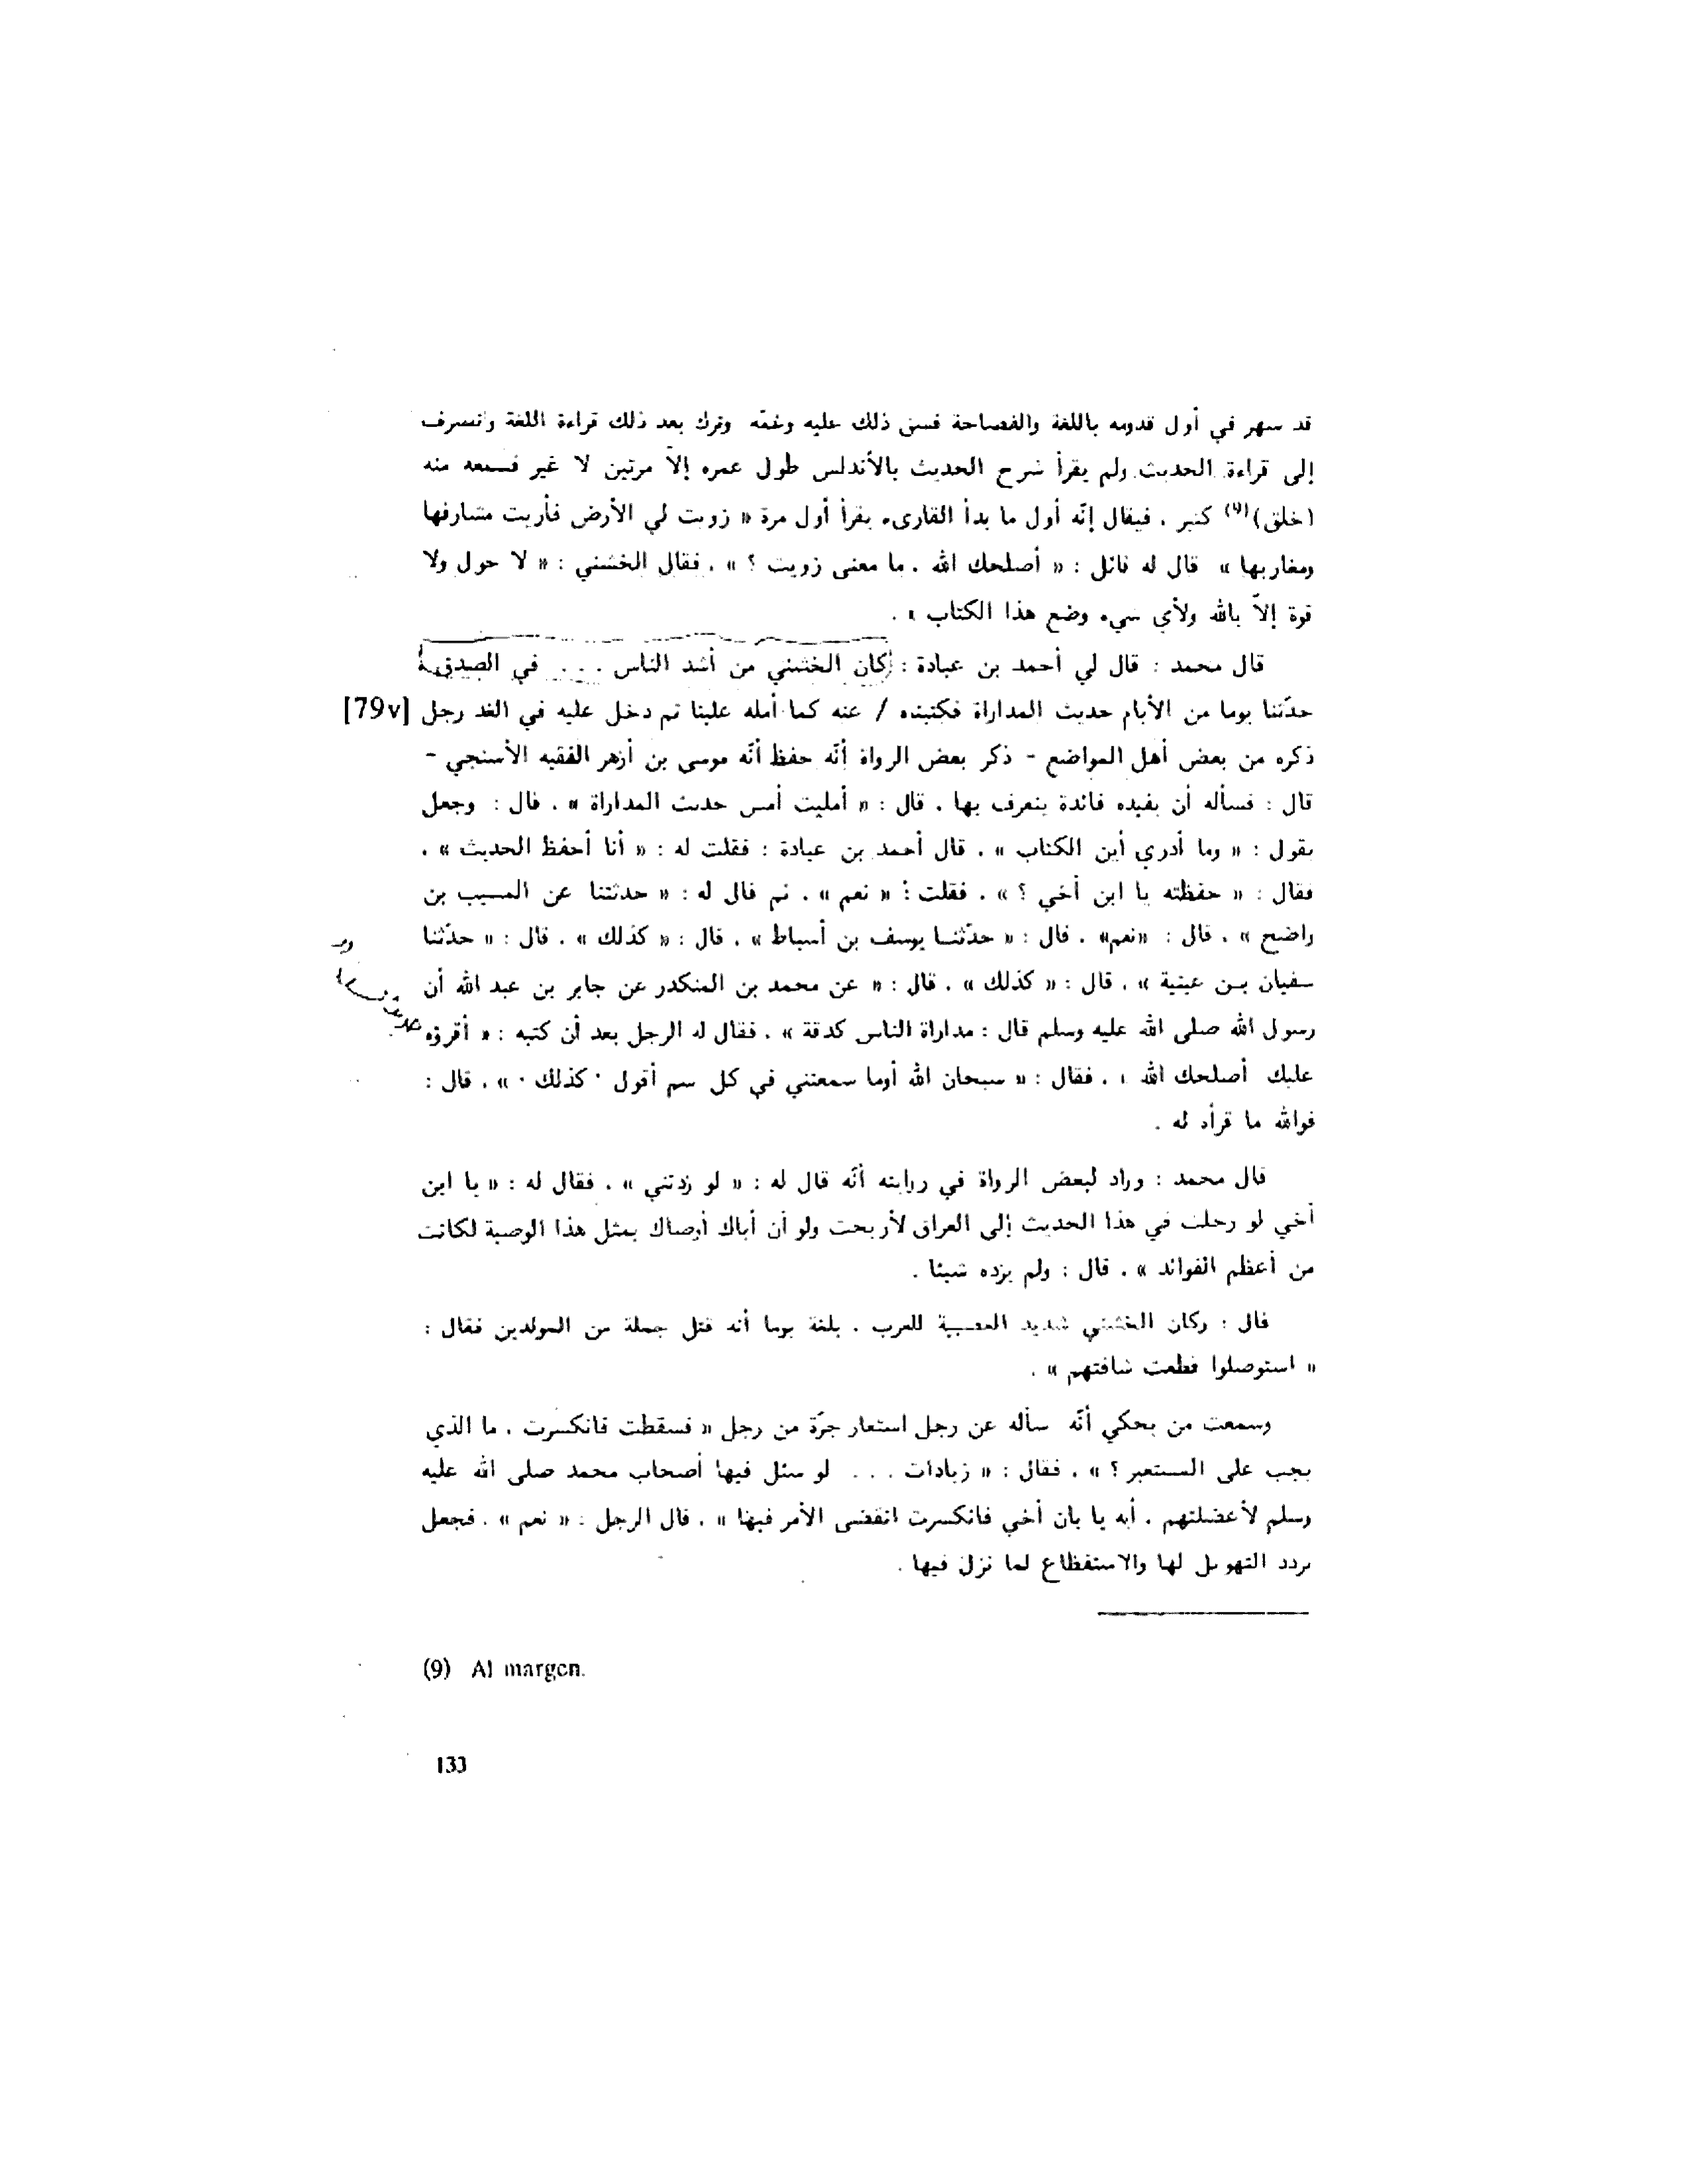 قد سهر في أول قدومه باللغة والفصاحة فسق ذلك عليه وغمّه وترك بعد ذلك قراءة اللغة وانصرف
إلى قراءة الحديث ولم يقرأ شرح الحديث بالأندلس طول عمره إلاّ مرتين لا غير فسمعه منه
(خلق)(9) كثير . فيقال إنّه أول ما بدأ القارىء يقرأ أول مرة « زويت لي الأرض فأريت مشارقها
ومغاربها » قال له قائل : « أصلحك الله . ما معنى زويت ؟ » . فقال الخشني : « لا حول ولا
قوة إلاّ بالله ولأي سيء وضع هذا الكتاب » .
قال محمد : قال لي أحمد بن عبادة : كان الخشني من أشد الناس . . . في الصدق
حدّثنا يوما من الأيام حديث المداراة فكتبناه / عنه كما أمله علينا ثم دخل عليه في الغد رجل [79v]
ذكره من بعض أهل المواضع - ذكر بعض الرواة أنّه حفظ أنّه موسى بن أزهر الفقيه الأستجي -
قال : فسأله أن يفيده فائدة يتعرف بها . قال : « أمليت أمس حديث المداراة » . قال : وجعل
يقول : « وما أدري أين الكتاب » . قال أحمد بن عبادة : فقلت له : « أنا أحفظ الحديث » .
فقال : « حفظته يا ابن أخي ؟ » . فقلت : « نعم » . ثم قال له : « حدثتنا عن المسيب بن
راضح » . قال : «نعم» . قال : « حدّثنا يوسف بن أسباط » . قال : « كذلك » . قال : « حدّثنا
سفيان بن عيتية » . قال : « كذلك » . قال : « عن محمد بن المنكدر عن جابر بن عبد الله أن
رسول الله صلى الله عليه وسلم قال : مداراة الناس كدقة » . فقال له الرجل بعد أن كتبه : « أقرؤه
عليك أصلحك الله » . فقال : « سبحان الله أوما سمعتني في كل سم أقول ' كذلك ' » . قال :
فوالله ما قرأه له .
قال محمد : وزاد لبعض الرواة في روايته أنّه قال له : « لو زدتني » . فقال له : « يا ابن
أخي لو رحلت في هذا الحديث إلى العراق لأربحت ولو أن أباك أوصاك بمثل هذا الوصية لكانت
من أعظم الفوائد » . قال : ولم يزده شيئا .
قال : وكان الخشني شديد العصبية للعرب . بلغة يوما أنه قتل جملة من المولدين فقال :
« استوصلوا قطعت شافتهم » .
وسمعت من يحكي أنّه سأله عن رجل استعار جرّة من رجل « فسقطت فانكسرت . ما الذي
يجب على المستعير ؟ » . فقال : « زيادات . . . لو سئل فيها أصحاب محمد صلى الله عليه
وسلم لأعضلتهم . أيه يا بان أخي فانكسرت انقضى الأمر فيها » . قال الرجل : « نعم » . فجعل
يردد التهويل لها والاستفظاع لما نزل فيها .
(9) Al margen.
133